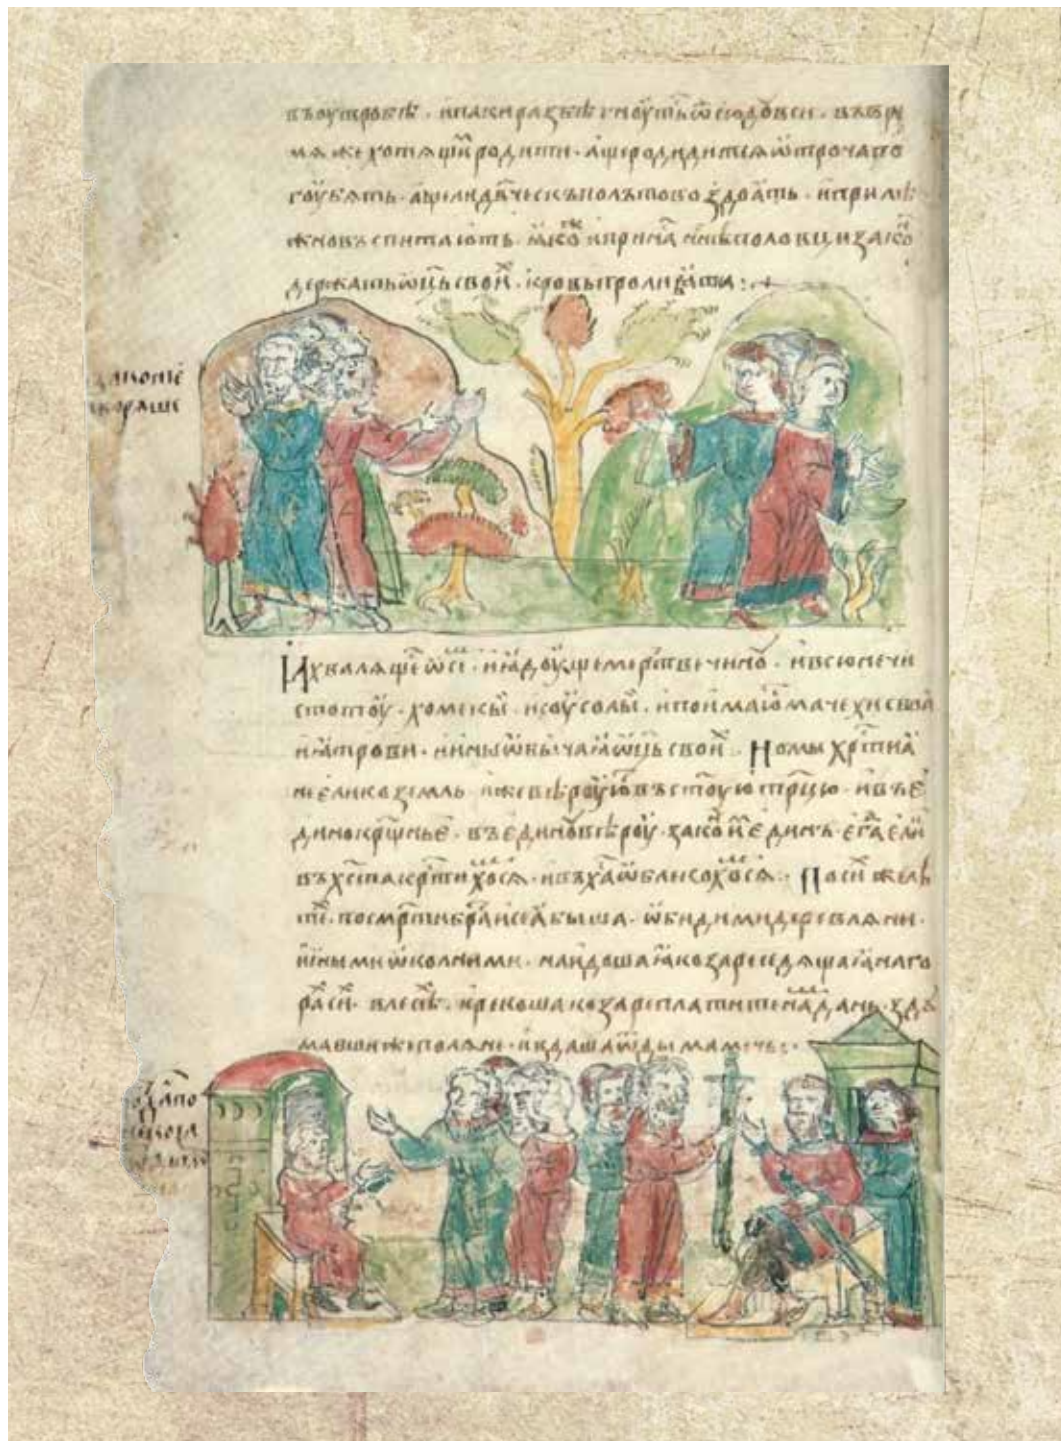 въоутробѣ · ипакиразъбѣгноуть ѿсюдо всеи · въврѣ
мѧ же хотѧщи родити · аще родидитьсѧ ѿтрочапо
гоубѧть · ащели дв҃ческъ полъ то воздоѧть · и прилѣ
жно въспитають · ꙗко и при на ннѣ половци зако
держать ѿць своиⷯ · кровь проливати
И хвалѧще ѡ се · и ꙗдоуще мертвечиноу · и всю нечи
стотоу · хомекы · и соусолы · и поимають мачехи своꙗ
и ꙗтрови · и ины ѡбычаꙗ ѿць своиⷯ · Но мы хрⷭ҇тиꙗ
не елико земль иже вѣроують въ ст҃оую трⷪ҇цю · и въ е
дино крⷭ҇щнье · въ едину вѣроу · законъ единъ · елⷭ҇а ели
въ хⷭ҇та крⷭ҇тихомсѧ · и въ хⷭ҇а ѡблекохомсѧ · По сиⷯ же лѣ
теⷯ · по смрⷮ҇ти братьи сеѧ быша · ѡбидими деревлѧни ·
иными ѡколними · наидоша ꙗ козаре седѧщаꙗ на го
раⷯ сиⷯ · в лесѣⷯ · и рекоша козаре платите намъ дань · здꙋ
мавши же полѧне · и вдаша ѿ дыма мечь